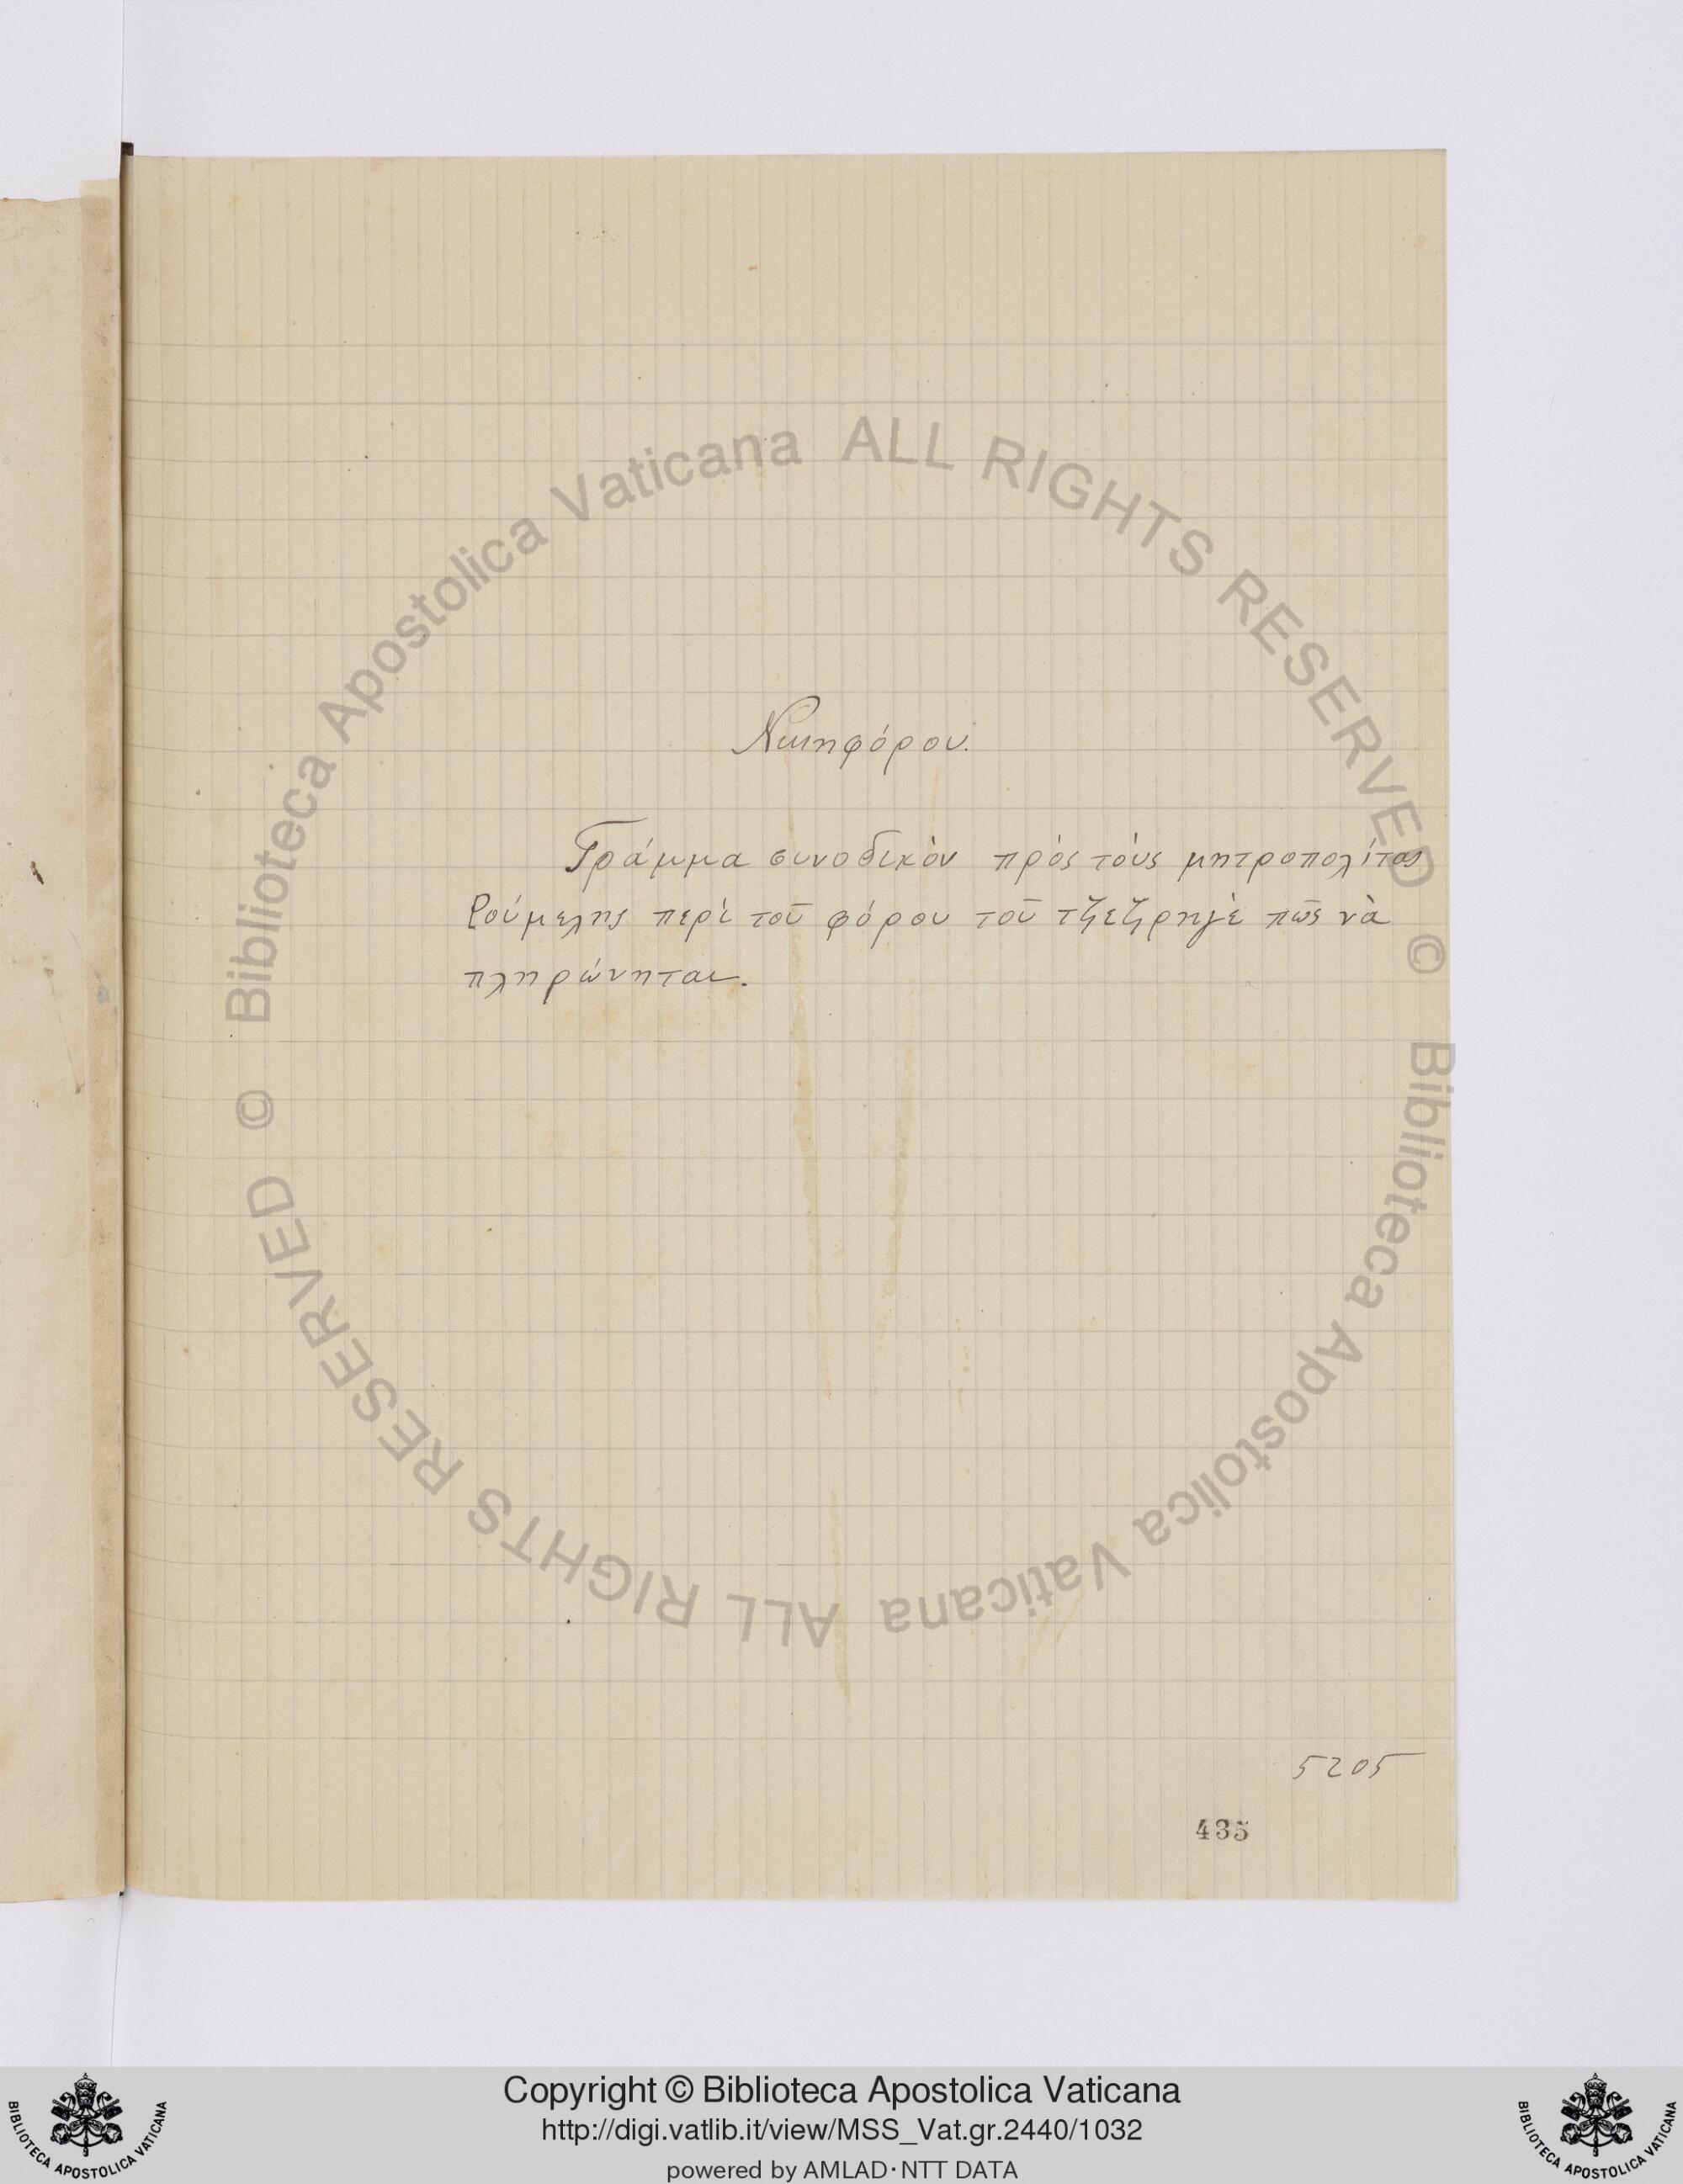 Νικηφόρου.
Γράμμα συνοδικὸν πρὸς τοὺς μητροπολίτας
Ρούμελης περὶ τοῦ φόρου τοῦ πῶς νὰ
πληρώνηται.
5205
435
© Biblioteca Apostolica Vaticana ALL RIGHTS RESERVED
© Biblioteca Apostolica Vaticana ALL RIGHTS RESERVED
Copyright © Biblioteca Apostolica Vaticana
http://digi.vatlib.it/view/MSS_Vat.gr.2440/1032
powered by AMLAD·NTT DATA
BIBLIOTECA APOSTOLICA VATICANA
BIBLIOTECA APOSTOLICA VATICANA